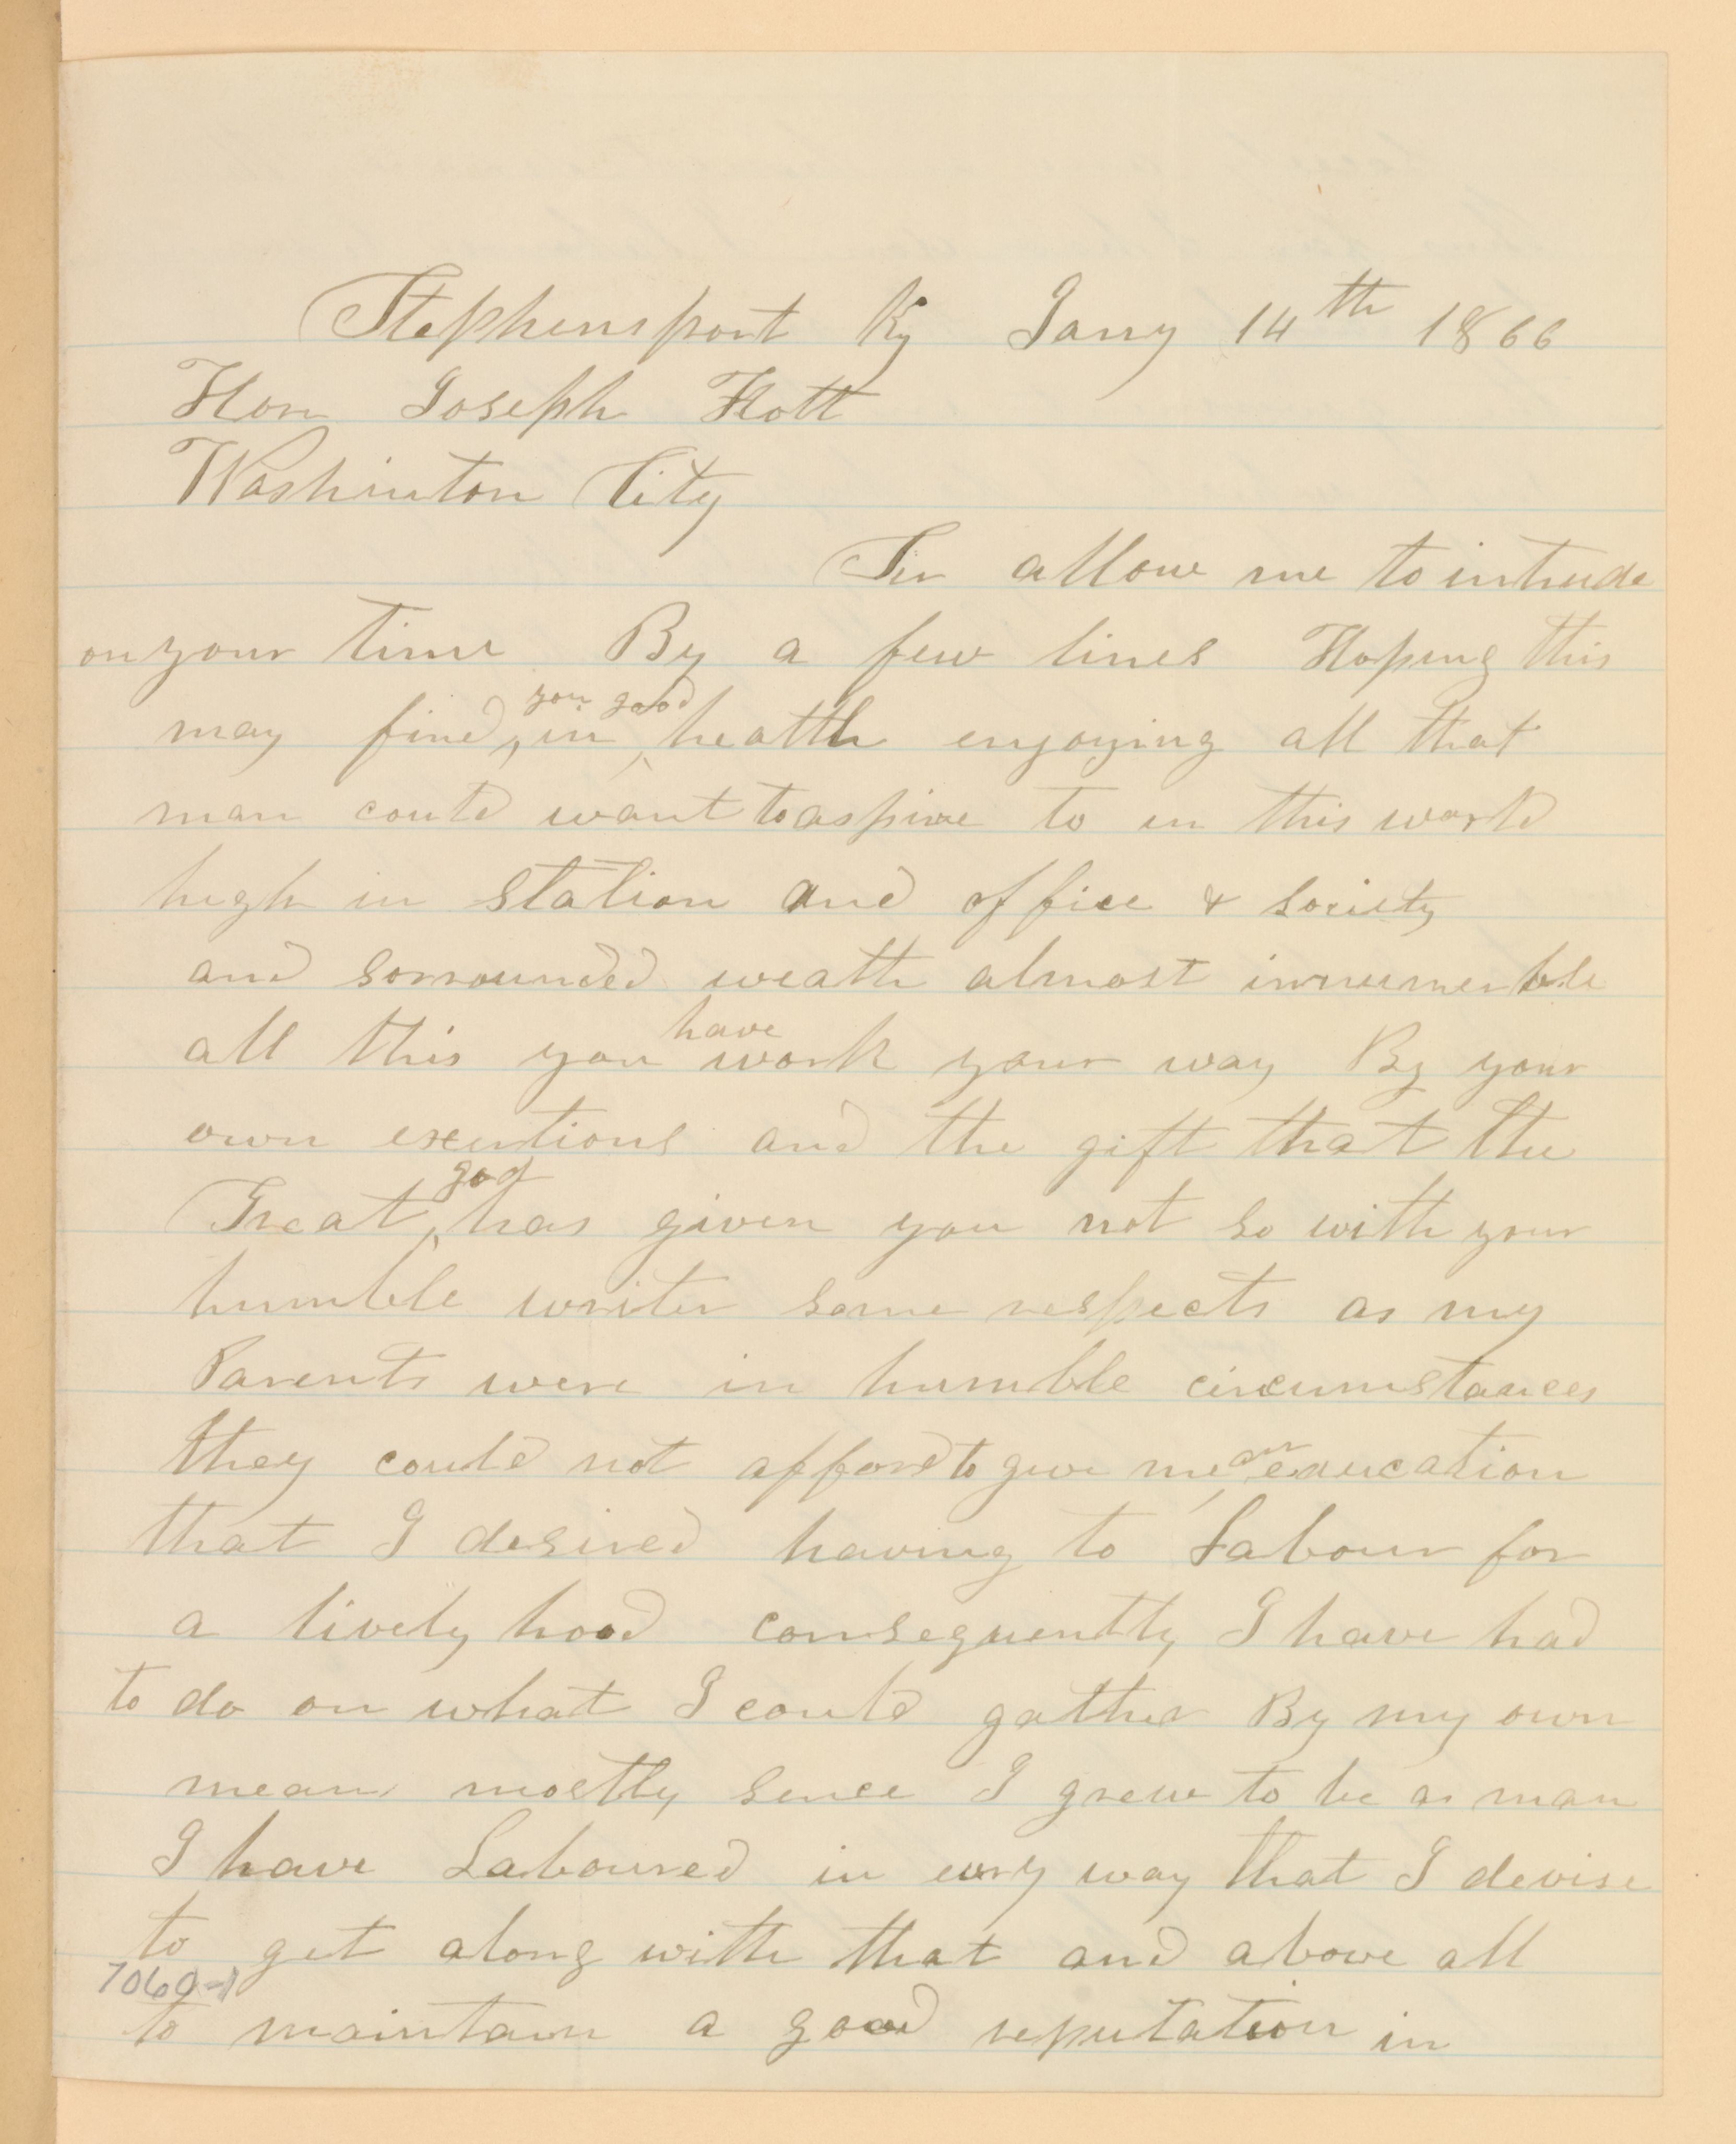 Stephensport Ky Jany 14th 1866
Hon Joseph Holt
Washinton City
Sir allow me to intrude
on your time By a few lines Hoping this
may find you in good health enjoying all that
man could want to aspire to in this world
high in station and office & society
and sorrounded weath almost innumerble
all this you have work your way By your
own exertions and the gift that the
Great god has given you not so with your
humble writer some respects as my
Parents were in humble circumstances
they could not afford to give me an education
that I desired having to Labour for
a lively hood consequently I have had
to do on what I could gather By my own
means mostly sence I grew to be a man
I have Laboured in evry way that I devise
to get along with that and above all
7060-1
to maintain a good reputation in